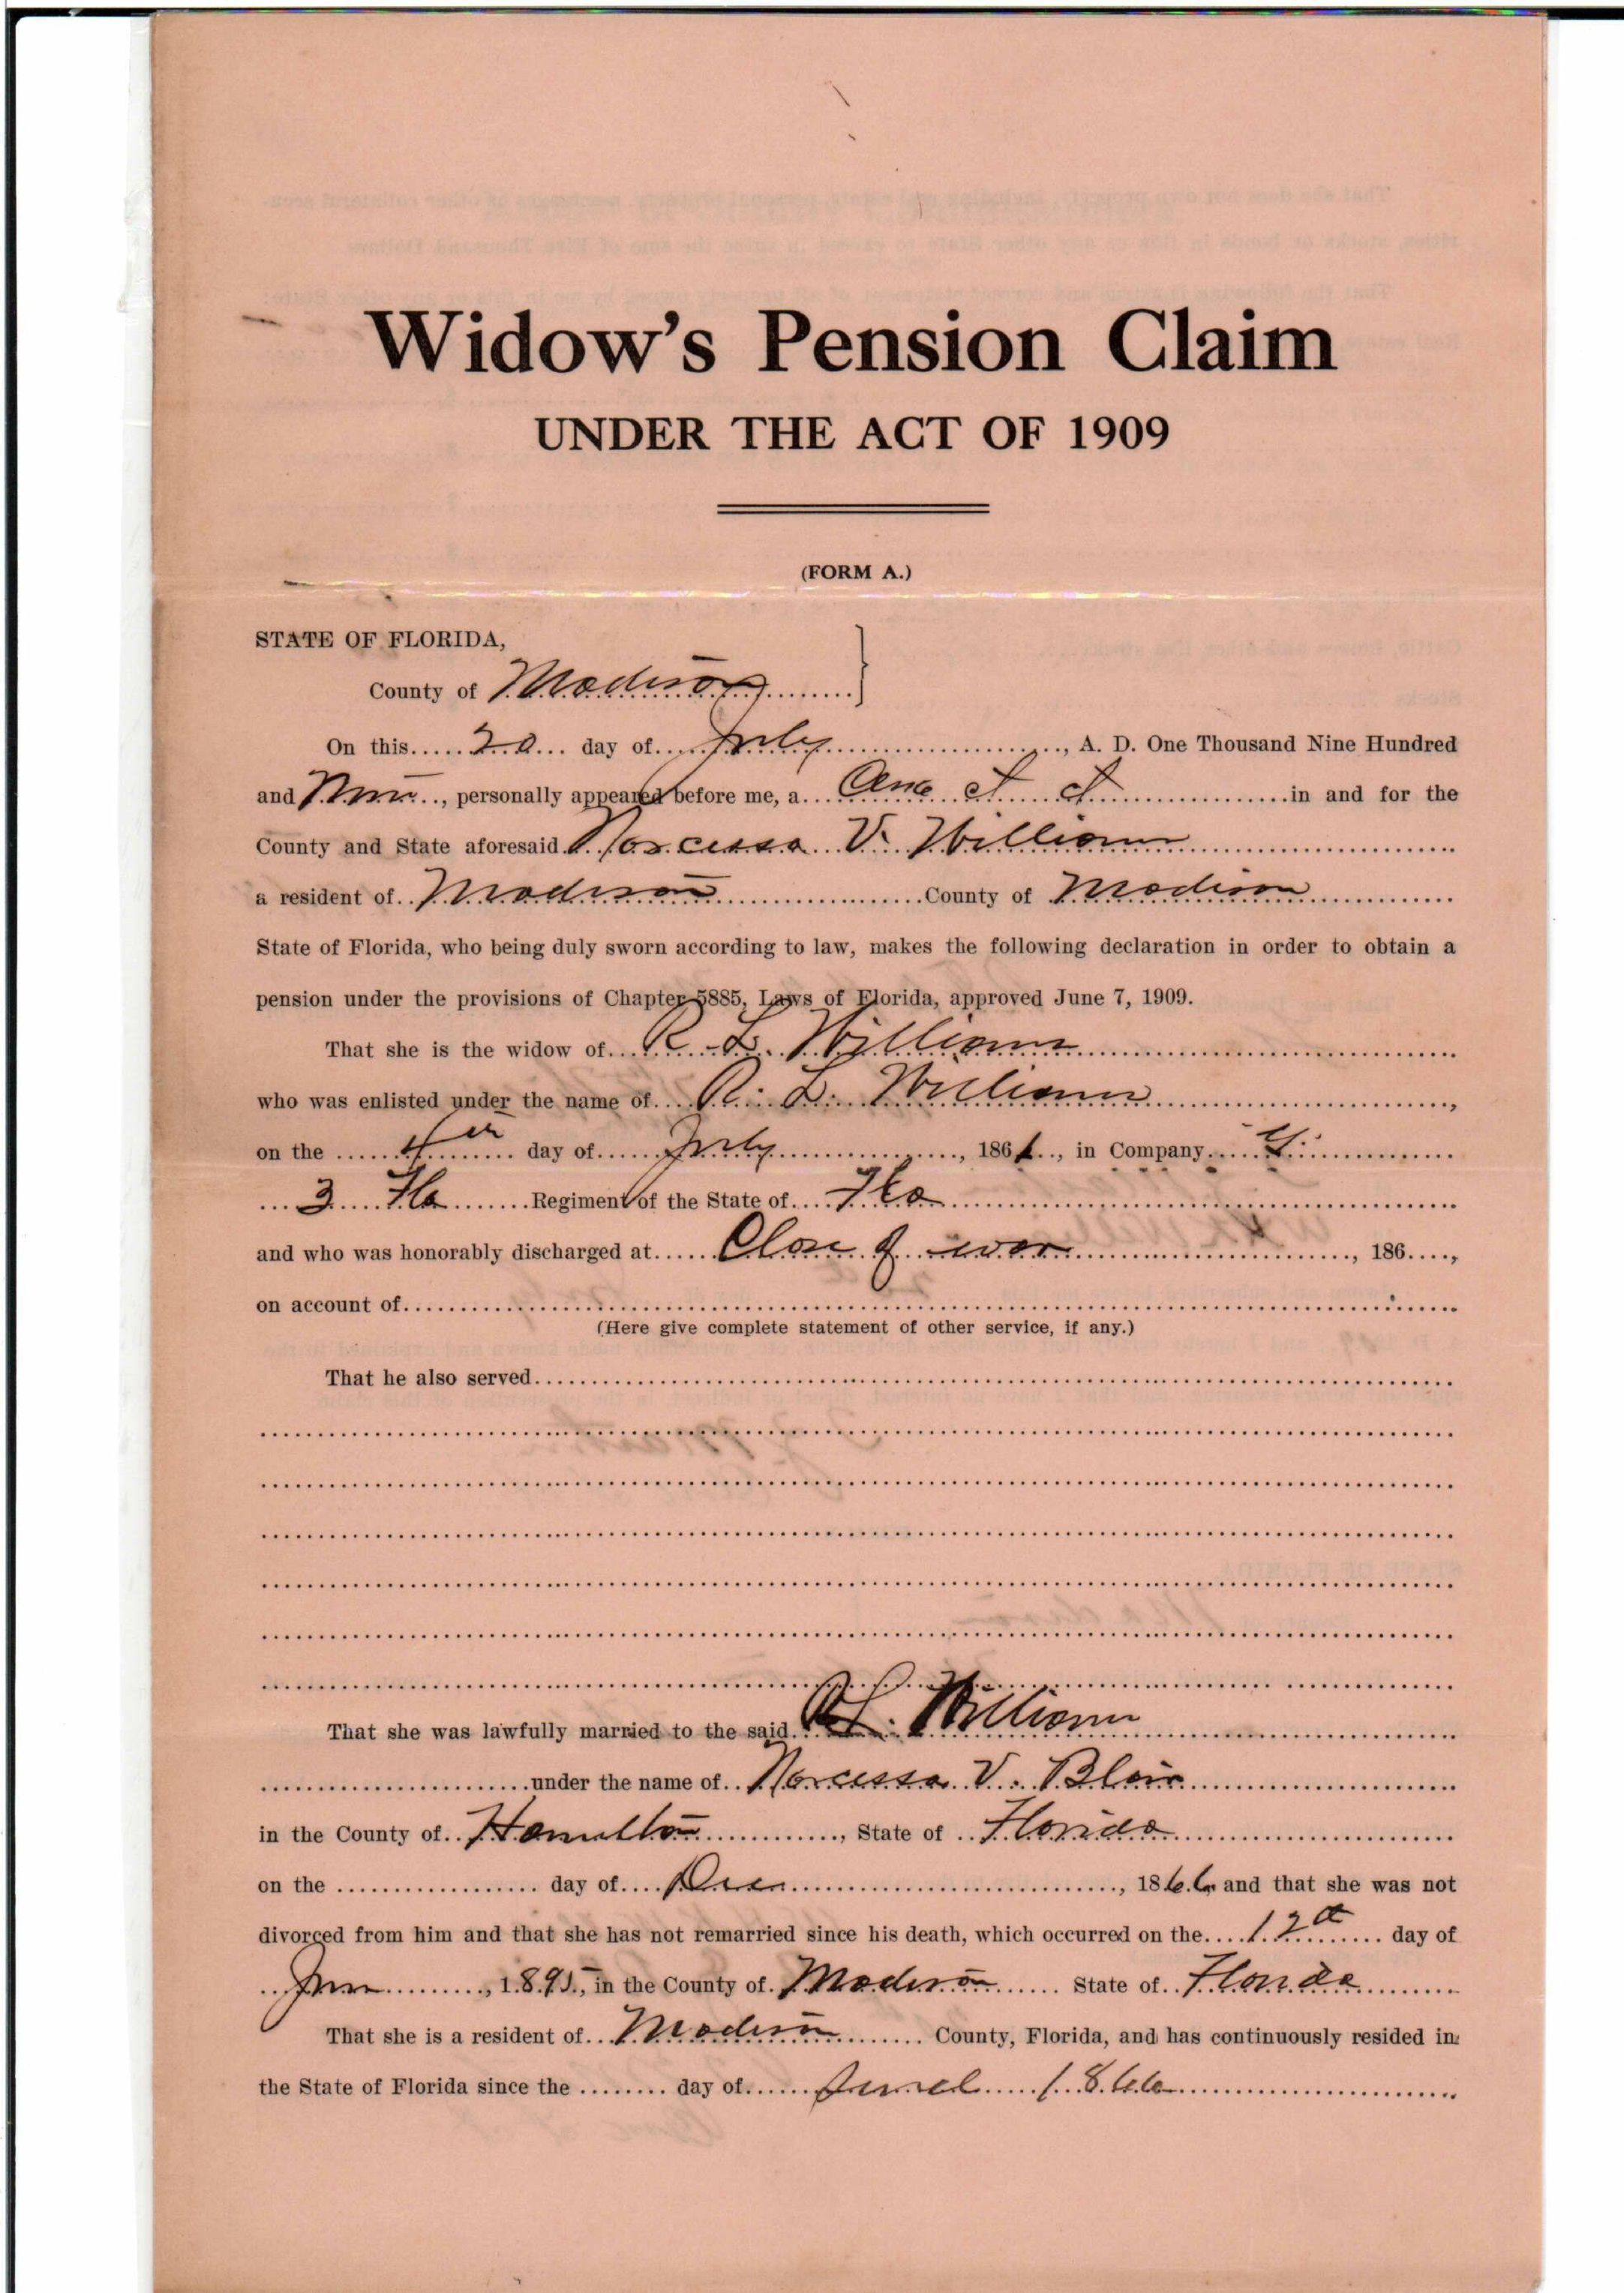 Widow's Pension Claim
UNDER THE ACT OF 1909
(FORM A.)
STATE OF FLORIDA,
County of Madison
On this 20 day of July, A. D. One Thousand Nine Hundred
and Nine, personally appeared before me, a in and for the
County and State aforesaid Narcessa V. Williams
a resident of Madison County of Madison
State of Florida, who being duly sworn according to law, makes the following declaration in order to obtain a
pension under the provisions of Chapter 5885, Laws of Florida, approved June 7, 1909.
That she is the widow of R. L. Williams
who was enlisted under the name of R. L. Williams,
on the 4th day of July, 1861, in Company G.
3 Fla Regiment of the State of Fla
and who was honorably discharged at Close of war, 186 ,
on account of
(Here give complete statement of other service, if any.)
That he also served
That she was lawfully married to the said R L. Williams
under the name of Narcessa V. Blair
in the County of Hamilton, State of Florida
on the day of Dec, 1866 and that she was not
divorced from him and that she has not remarried since his death, which occurred on the 12th day of
, 1895, in the County of Madison State of Florida
That she is a resident of Madison County, Florida, and has continuously resided in
the State of Florida since the day of 1866